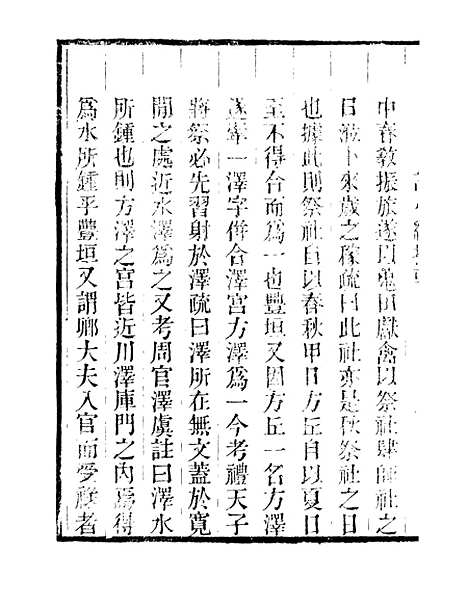 中春敎振旅遂以蒐田獻禽以祭社肆師社之
日涖卜來歲之稼疏曰此社亦是秋祭社之日
也據此則祭社自以春秋甲日方丘自以夏日
至不得合而爲一也豐垣又因方丘一名方澤
遂牽一澤字倂合澤宮方澤爲一今考禮天子
將祭必先習射於澤疏曰澤所在無文蓋於寬
閒之處近水澤爲之又考周官澤虞註曰澤水
所鍾也則方澤之宮皆近川澤庫門之內焉得
爲水所鍾乎豐垣又謂鄉大夫入官而受祿者